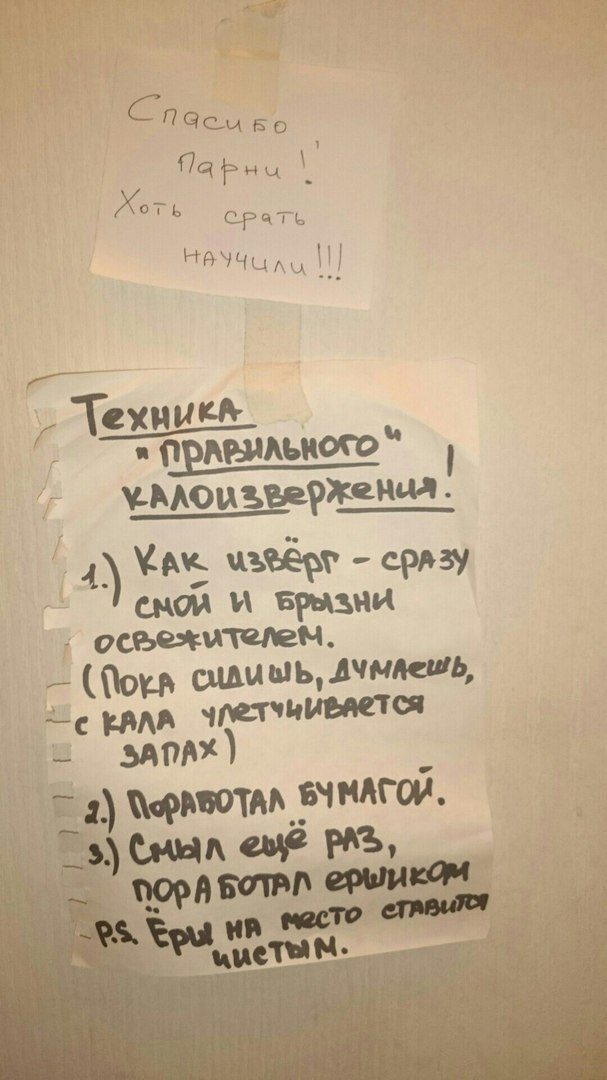 Спасибо
парни!
Хоть срать
научили!!!
Техника
"правильного"
калоизвержения!
1.) Как извёрг - сразу
смой и брызни
освежителем.
(Пока сидишь, думаешь,
с кала улетучивается
запах)
2.) Поработал бумагой.
3.) Смыл ещё раз,
поработал ершиком
P.S. Ёрш на место ставится
чистым.